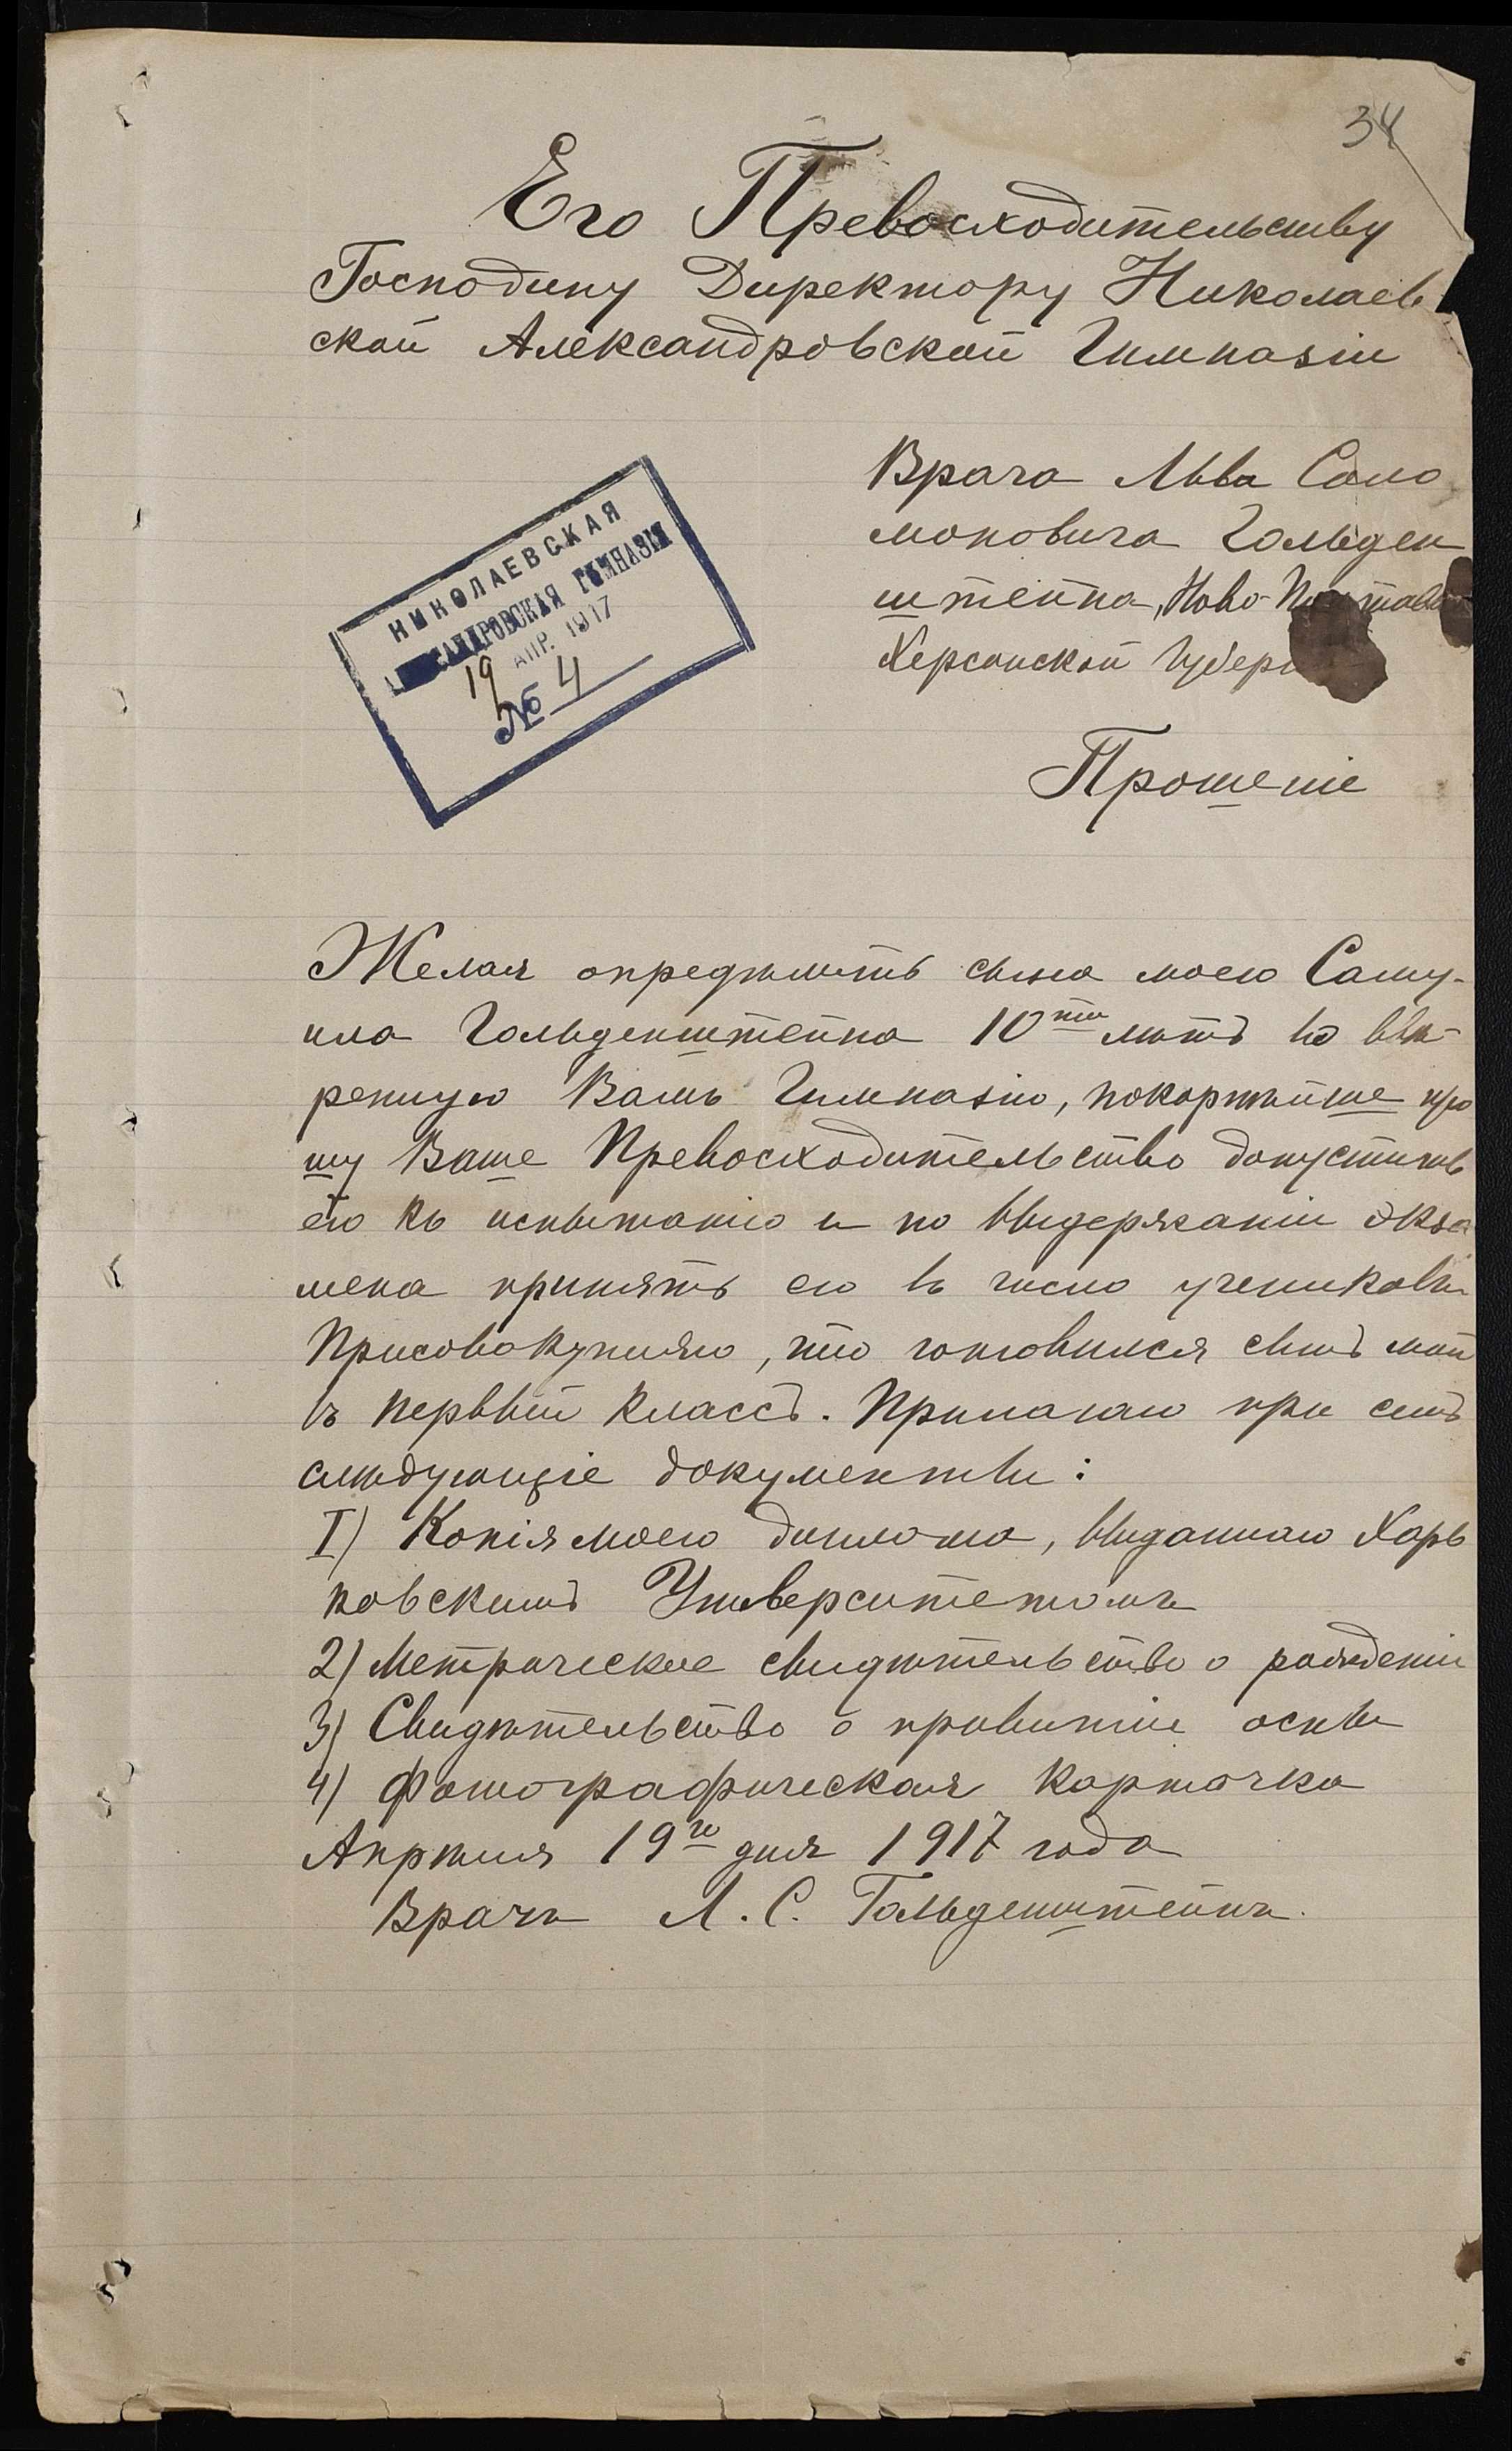 34
Его Превосходительству
Господину Директору Николаев
ской Александровской Гимназіи
Врача Льва Соло
моновича Гольден
штейна, Ново-
Херсонской
НИКОЛАЕВСКАЯ
ГИМНАЗІЯ
19 АПР. 1917
№ 4
Прошеніе
Желая опредѣлить сына моего Саму-
ила Гольденштейна 10ти лѣтъ во ввѣ-
ренную Вамъ Гимназію, покорнѣйше про
шу Ваше Превосходительство допустить
его къ испытанію и по выдержаніи экза
мена принять его въ число учениковъ.
Присовокупляю, что готовился сынъ мой
въ первый классъ. Прилагаю при семъ
слѣдующіе документы:
I) Копія моего диплома, выданнаго Харь
ковскимъ Университетомъ
2) Метрическое свидѣтельство о рожденіи
3) Свидѣтельство о привитіи оспы
4) Фотографическая карточка
Апрѣля 19го дня 1917 года
Врачъ Л. С. Гольденштейнъ.